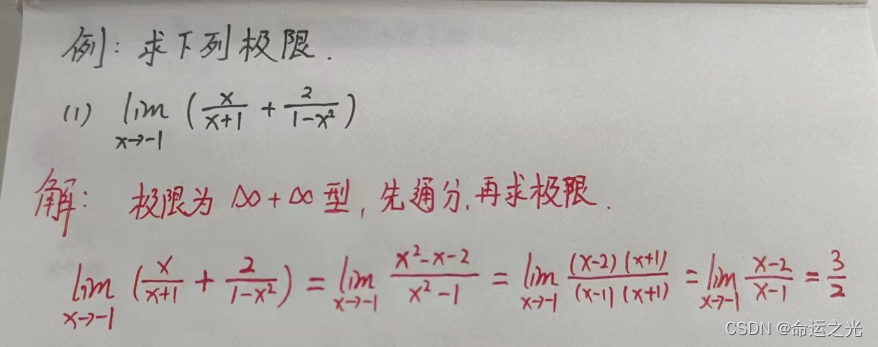 例：求下列极限.
(1) lim x→-1 (x/(x+1) + 2/(1-x²))
解：极限为 ∞+∞ 型, 先通分, 再求极限.
lim x→-1 (x/(x+1) + 2/(1-x²)) = lim x→-1 (x²-x-2)/(x²-1) = lim x→-1 ((x-2)(x+1))/((x-1)(x+1)) = lim x→-1 (x-2)/(x-1) = 3/2
CSDN @命运之光